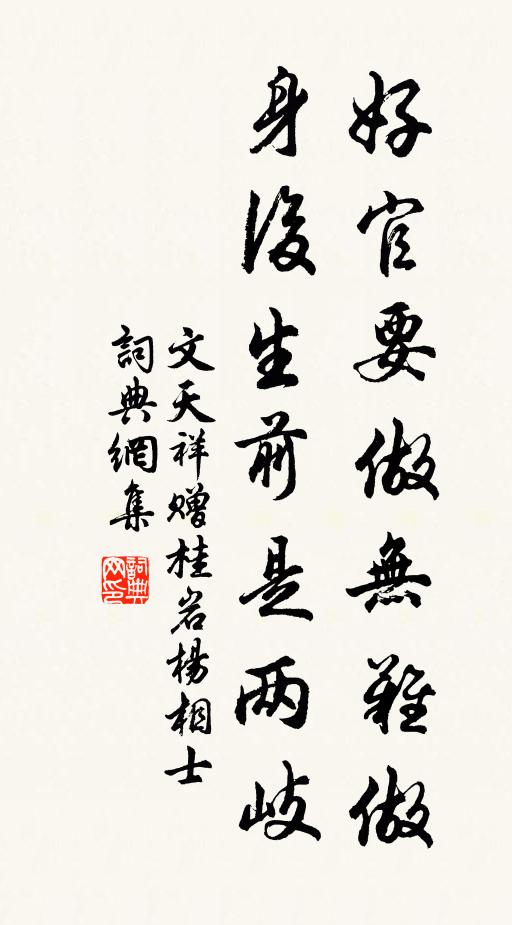 好官要做無難做
身後生前是两岐
文天祥贈桂岩楊相士
詞典網集
詞典网印